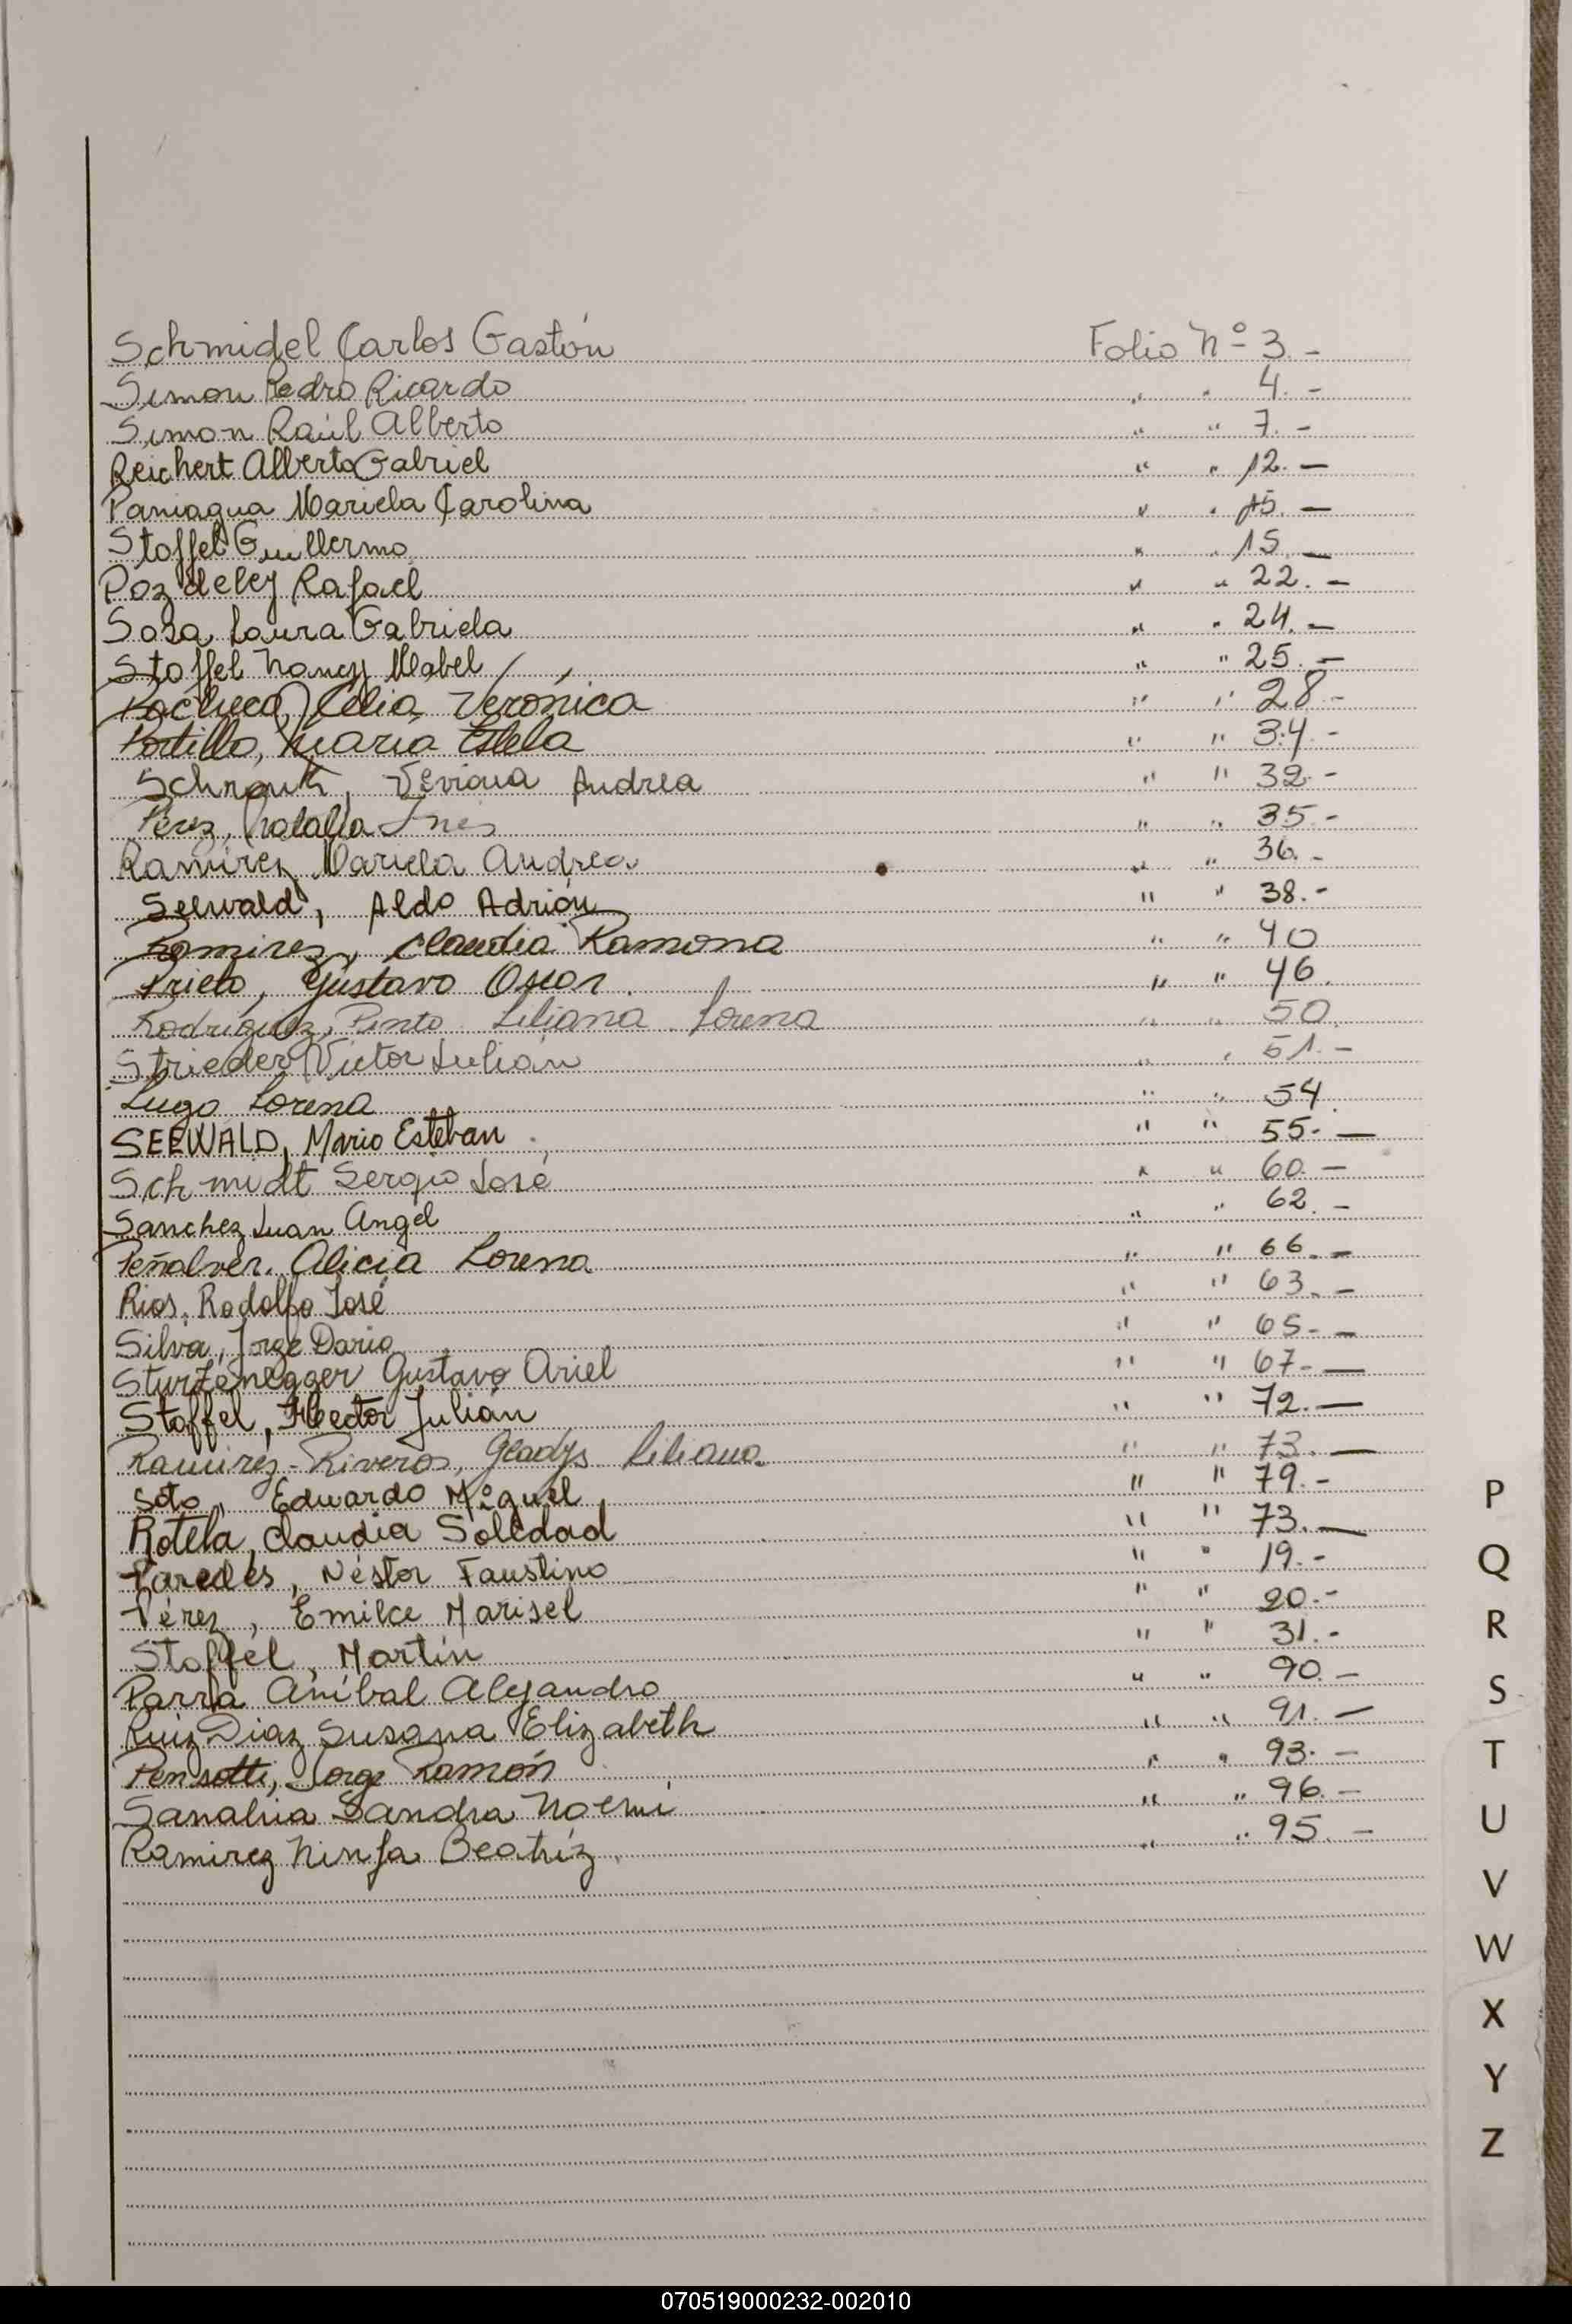 Schmidel Carlos Gastón Folio Nº 3.-
Simon Pedro Ricardo " " 4.-
Simon Raúl Alberto " " 7.-
Reichert Alberto Gabriel " " 12.-
Paniagua Mariela Carolina " " 15.-
Stoffel Guillermo " " 15.-
Poz deley Rafael " " 22.-
Sosa Laura Gabriela " " 24.-
Stoffel Nancy Mabel " " 25.-
Pacheco, Celia Verónica " " 28.-
Portillo, María Estela " " 34.-
Schrank, Andrea " " 32.-
Pérez, Natalia Ines " " 35.-
Ramírez Mariela Andrea " " 36.-
Seewald, Aldo Adrián " " 38.-
Ramirez, Claudia Ramona " " 40
Prieto, Gustavo Oscar. " " 46.
Rodriguez, Pinto Liliana Lorena " " 50.
Strieder Victor Julián " " 51.-
Lugo Lorena " " 54.
SEEWALD, Mario Esteban " " 55.-
Schmidt Sergio José " " 60.-
Sanchez Juan Angel " " 62.-
Peñalver. Alicia Lorena " " 66.-
Rios, Rodolfo José " " 63.-
Silva, Jorge Dario " " 65.-
Sturzenegger Gustavo Ariel " " 67.-
Stoffel, Hector Julián " " 72.-
Ramirez-Riveros, Gladys Liliana. " " 73.-
Soto, Eduardo Miguel " " 79.-
Rotela, Claudia Soledad " " 73.-
Paredes, Néstor Faustino " " 19.-
Pérez, Emilce Marisel " " 20.-
Stoffel, Martín " " 31.-
Parra Aníbal Alejandro " " 90.-
Ruiz Diaz Susana Elizabeth " " 91.-
Pensotti, Jorge Ramón " " 93.-
Sanabria Sandra Noemí " " 96.-
Ramirez Ninfa Beatríz " " 95.-
P
Q
R
S
T
U
V
W
X
Y
Z
070519000232-002010